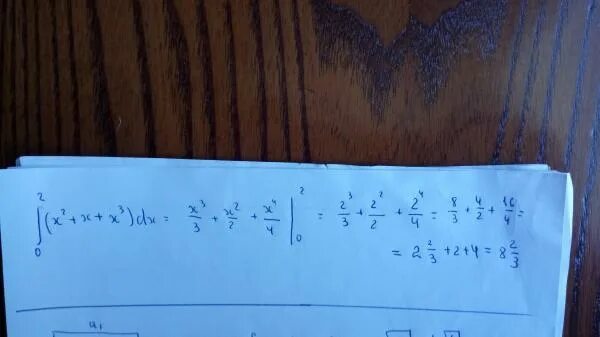 ∫₀² (x² + x + x³)dx = x³/3 + x²/2 + x⁴/4 |₀² = 2³/3 + 2²/2 + 2⁴/4 = 8/3 + 4/2 + 16/4 =
= 2 2/3 + 2 + 4 = 8 2/3